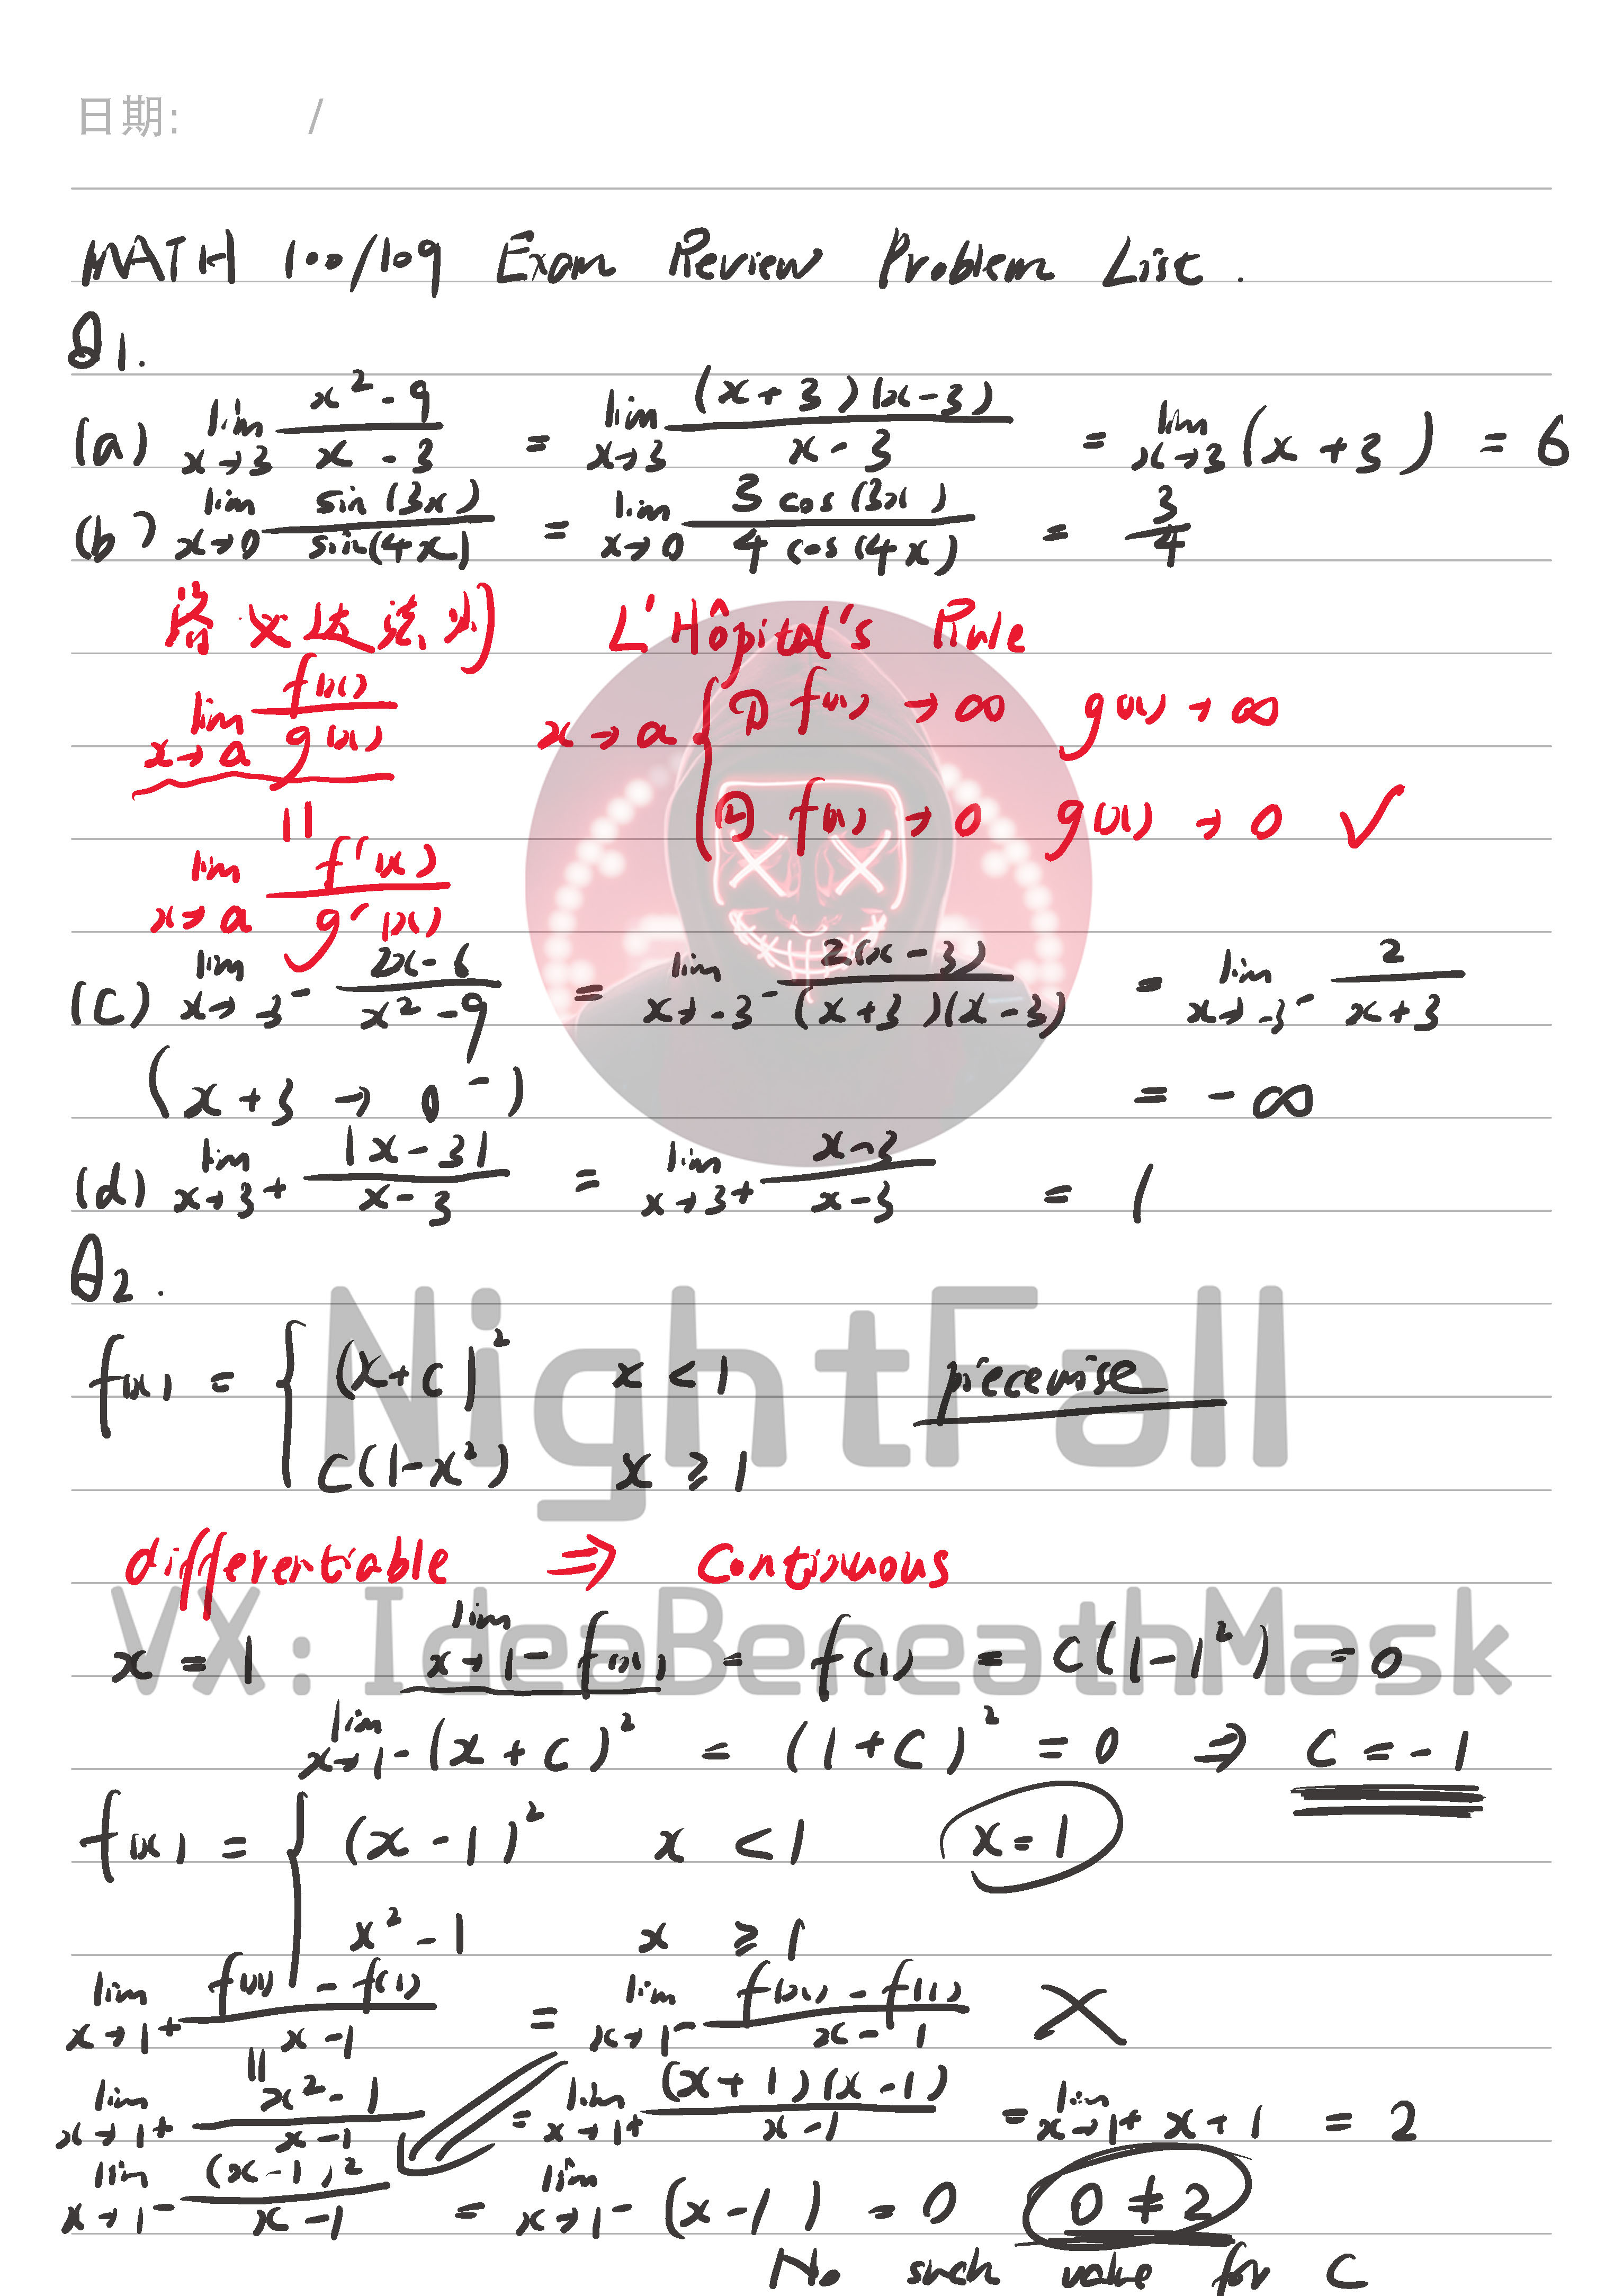 日期: /
MATH 100/109 Exam Review Problem List.
Q1.
(a) lim x→3 (x²-9)/(x-3) = lim x→3 (x+3)(x-3)/(x-3) = lim x→3 (x+3) = 6
(b) lim x→0 sin(3x)/sin(4x) = lim x→0 3cos(3x)/4cos(4x) = 3/4
洛必达法则 L'Hôpital's Rule
lim x→a f(x)/g(x) x→a { ① f(x) → ∞ g(x) → ∞
② f(x) → 0 g(x) → 0 ✓
||
lim x→a f'(x)/g'(x)
(C) lim x→-3⁻ (2x-6)/(x²-9) = lim x→-3⁻ 2(x-3)/(x+3)(x-3) = lim x→-3⁻ 2/(x+3)
(x+3 → 0⁻) = -∞
(d) lim x→3+ |x-3|/(x-3) = lim x→3+ (x-3)/(x-3) = 1
Q2.
NightFall
f(x) = { (x+c)² x < 1 piecewise
c(1-x²) x ≥ 1
differentiable ⇒ Continuous
VX: IdeaBeneathMask
x = 1 lim x→1- f(x) = f(1) = c(1-1²) = 0
lim x→1- (x+c)² = (1+c)² = 0 ⇒ c = -1
f(x) = { (x-1)² x < 1 x=1
x²-1 x ≥ 1
lim x→1+ (f(x)-f(1))/(x-1) = lim x→1- (f(x)-f(1))/(x-1) X
||
lim x→1+ (x²-1)/(x-1) = lim x→1+ (x+1)(x-1)/(x-1) = lim x→1+ x+1 = 2
lim x→1- (x-1)²/(x-1) = lim x→1- (x-1) = 0 0 ≠ 2
No such value for C